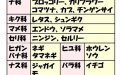 ブロッコリー、カリフラワー、
コマツナ、カブ、チンゲンサイ
キク科 レタス、シュンギク
マメ科 エンドウ、ソラマメ
セリ科 ニンジン、セルリー
ヒガンバナ科 ネギ タマネギ ヒユ科 ホウレンソウ
ナス科 ジャガイモ バラ科 イチゴ